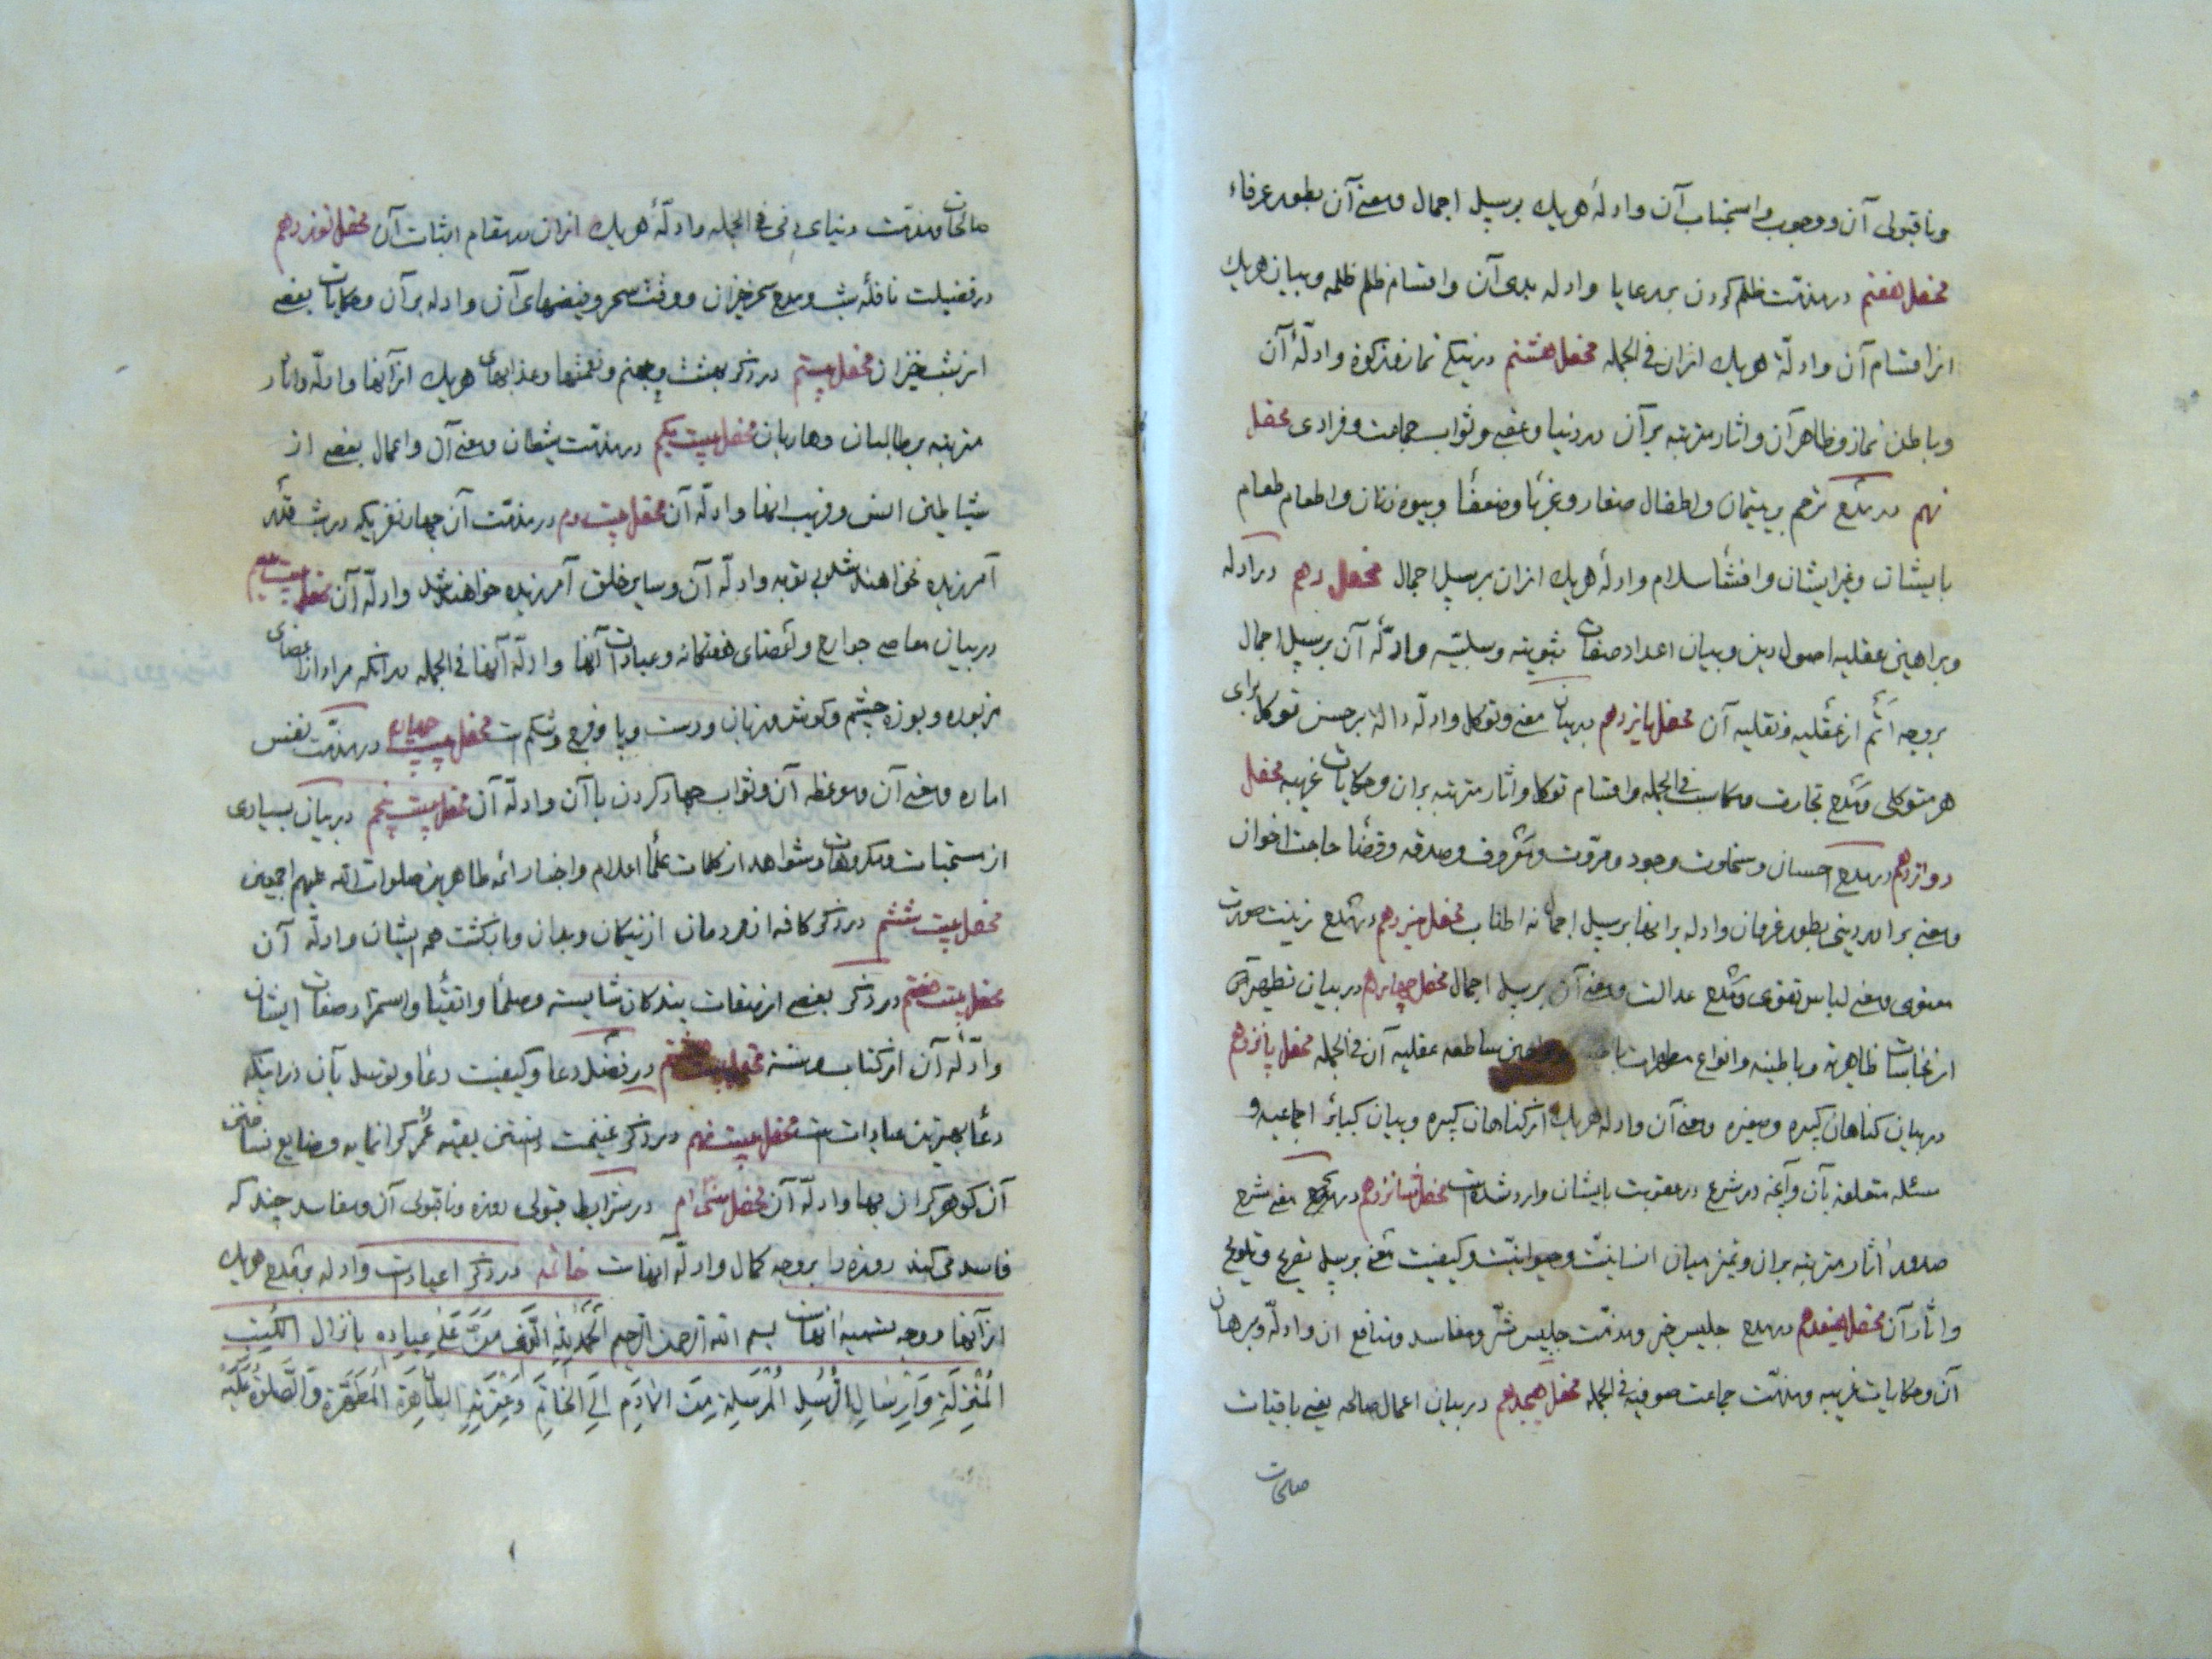 وناقبولی آن و وجوب و اجتناب آن و ادلهٔ هریك برسبیل اجمال ومعنی آن بطور عرفاء
محفل هفتم در مذمّت ظلم كردن برعایا وادله بدی آن واقسام ظلم ظلمه وبیان هریك
از اقسام آن وادلّهٔ هریك ازان فی الجمله محفل هشتم در نیكی نماز مذكوره وادلّهٔ آن
وباطن نماز وظاهر آن واثار مترتبه برآن در دنیا وعقبی وثواب جماعت وفرادی محفل
نهم در مدح ترحم بریتیمان واطفال صغار وغربا وضعفا وبیوه زنان واطعام طعام
بایشان وغیر ایشان وافشأ سلام وادلهٔ هریك ازان برسبیل اجمال محفل دهم در ادله
وبراهین عقلیه اصول دین وبیان اعداد صفات ثبوتیه وسلبیّه وادلّهٔ آن برسبیل اجمال
بروجه اتمّ از عقلیه ونقلیه آن محفل یازدهم دربیان معنی وتوكل وادلّه دالهٔ برحسن توكل برای
هر متوكلی ومدح تجارت ومكاسب فی الجمله واقسام توكل واثار مترتبه بران وحكایات غریبه محفل
دوازدهم در مدح احسان وسخاوت وجود ومروّت ومعروف وصدقه وقضأ حاجت اخوان
ومعنی برادر دینی بطور عرفان وادله برانها برسبیل اجمال نه اطناب محفل سیزدهم در مدح زینت صورت
معنوی ومعنی لباس تقوی ومدح عدالت ومعنی آن برسبیل اجمال محفل چهاردهم دربیان تطهیر آن
از نجاسات ظاهریه وباطنیه وانواع مطهرات ساطعه عقلیه آن فی الجمله محفل پانزدهم
دربیان كناهان كبیره وصغیره ومعنی آن وادله هریك از كناهان كبیره وبیان كبائر اجماعیه و
مسئله متعلقه بآن وآنچه در شرع در عقوبت بایشان وارد شده است محفل شانزدهم در مدح معنی شرع
صدور اثار مترتبه بران وتمیز میان انسانیّت وحیوانیّت وكیفیت معنی برسبیل تصریح وتلویح
واثار آن محفل هیفدهم در مدح جلیس خیر ومذمّت جلیس شرّ ومفاسد ومنافع ان وادلّه وبرهان
آن وحكایات غریبه ومذمّت جماعت صوفیه فی الجمله محفل هیجدهم دربیان اعمال صالحه یعنی باقیات
صالحات
صالحات ومذمّت دنیای دنی فی الجمله وادلّهٔ هریك ازان در مقام اثبات آن محفل نوزدهم
در فضیلت نافلهٔ شب ومدح سحرخیزان ووقت سحر وفیضهای آن وادله برآن وحكایات بعضی
از شب خیزان محفل بیستم در ذكر بهشت وجهنم ونعمتها وعذابهای هریك از آنها وادلّه واثار
مترتبه برطالبان وهاربان محفل بیست یكم در مذمّت شیطان ومعنی آن واعمال بعضی از
شیاطین انس وفریب انها وادلّه آن محفل بیست دوم در مذمّت آن چهار نفریكه در شب قدر
آمرزیده نخواهند شد بی توبه وادلّه آن وسایر خلق آمرزیده خواهند شد وادلّه آن محفل بیست سیم
دربیان معاصی جوارح واعضای هفتكانه وعبادات آنها وادلّه آنها فی الجمله بدانكه مراد از اعضای
مزبوره وبوزه چشم وكوش وزبان ودست وپا وفرج وشكم است محفل بیست چهارم در مذمّت نفس
اماره ومعنی آن وموعظه آن وثواب جهاد كردن با آن وادلّه آن محفل بیست پنجم دربیان بسیاری
از مستحبات ومكروهات وشواهد از كلمات علمأ اعلام واخبار ائمه طاهرین صلوات الله علیهم اجمعین
محفل بیست ششم در ذكر كافه از مردمان از نیكان وبدان وبازكشت همه ایشان وادلّه آن
محفل بیست هفتم در ذكر بعضی از صفات بندكان شایسته وصلحأ واتقیأ واستمرار صفات ایشان
وادّلهٔ آن از كتاب وسنّة محفل بیست هشتم در فضل دعا وكیفیت دعا وتوسل بآن در اینكه
دعا بهترین عبادات است محفل بیست نهم در ذكر غنیمت دانستن بقیّه عمر كرانمایه وضایع نساختن
آن كوهر كران بها وادلّه آن محفل سی ام در شرایط قبولی روزه وناقبولی آن ومفاسد چند كه
فاسد می كند روزه را بروجه كمال وادلّه آنهاست خاتمه در ذكر اعیادست وادله برمدح هریك
از آنها ووجه تسمیه انهاست بسم الله الرحمن الرحیم اَلْحَمْدُ لِلّهِ الَّذی مَنَّ عَلی عِبادِه بانزال الكُتبِ
المُنْزَلَةِ وَاِرْسٰالِ الرُّسُلِ الْمُرْسَلَةِ مِنَ الآدَمِ اِلَی الخٰاتَمِ وَعِتْرَتِهِ الطّاهِرَةِ المُطَهَّرَة وَالصَّلوةُ عَلَیْهِ